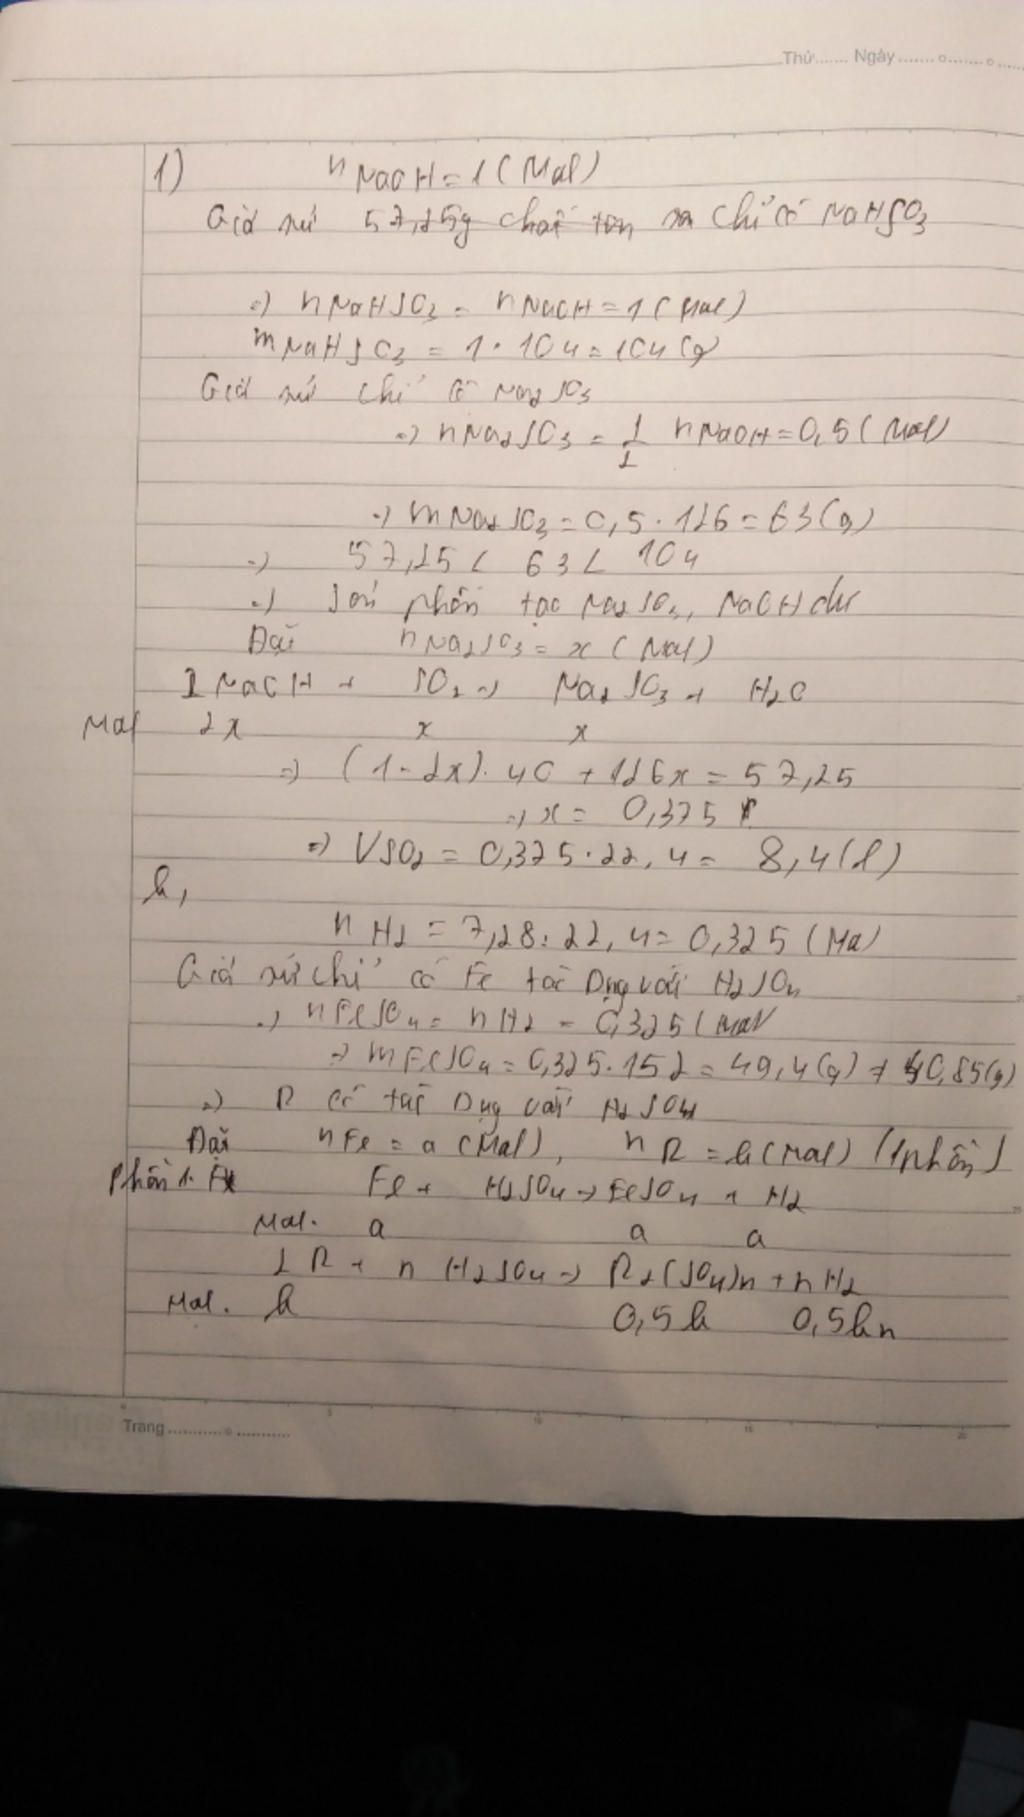 Thứ....... Ngày
1) nNaOH = 1 (Mol)
Giả sử 57,25g chất tan chỉ có NaHSO3
=) nNaHSO3 = nNaOH = 1 (Mol)
mNaHSO3 = 1 . 104 = 104 (g)
Giả sử chỉ có Na2SO3
=) nNa2SO3 = 1/2 nNaOH = 0,5 (Mol)
=) mNa2SO3 = 0,5 . 126 = 63 (g)
=) 57,25 < 63 < 104
=) sản phẩm tạo Na2SO3, NaOH dư
Đặt nNa2SO3 = x (Mol)
2NaOH + SO2 -> Na2SO3 + H2O
Mol 2x x x
=) (1 - 2x) . 40 + 126x = 57,25
=) x = 0,375
=) VSO2 = 0,375 . 22,4 = 8,4 (l)
b,
nH2 = 7,28 : 22,4 = 0,325 (Mol)
Giả sử chỉ có Fe tác Dụng với H2SO4
=) nFeSO4 = nH2 = 0,325 (Mol)
=) mFeSO4 = 0,325 . 152 = 49,4 (g) ≠ 40,85 (g)
=) R có tác Dụng với H2SO4
Đặt nFe = a (Mol), nR = b (Mol) (1 phần)
Phần 1. Fe + H2SO4 -> FeSO4 + H2
Mol. a a a
2R + nH2SO4 -> R2(SO4)n + nH2
Mol. b 0,5b 0,5bn
Trang